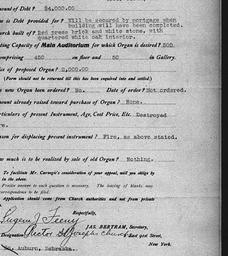 of Debt? $4,000.00
is Debt provided for? Will be secured by mortgage when
building will have been completed.
urch built of? Red press brick and white stone, with
quartered white oak interior.
ting Capacity of Main Auditorium for which Organ is desired? 500
omprising 450 on floor and 50 in Gallery.
ice of proposed Organ? 2,000.00
(Form should not be returned till this has been inquired into and settled.)
s new Organ been ordered? No. Date of order? Not ordered.
mount already raised toward purchase of Organ? None.
articulars of present Instrument, Age, Cost Price, Etc. Destroyed
re.
ason for displacing present instrument? Fire, as above stated.
w much is to be realized by sale of old Organ? Nothing.
To facilitate Mr. Carnegie's consideration of your appeal, will you oblige by
in the above.
Precise answer to each question is necessary. The leaving of blanks may
correspondence to be filed.
Application should come from Church authorities and not from private
Respectfully,
Eugene J. Feeny
JAS. BERTRAM, Secretary,
Designation Rector St Joseph Church East 91st Street,
New York.
Auburn, Nebraska.